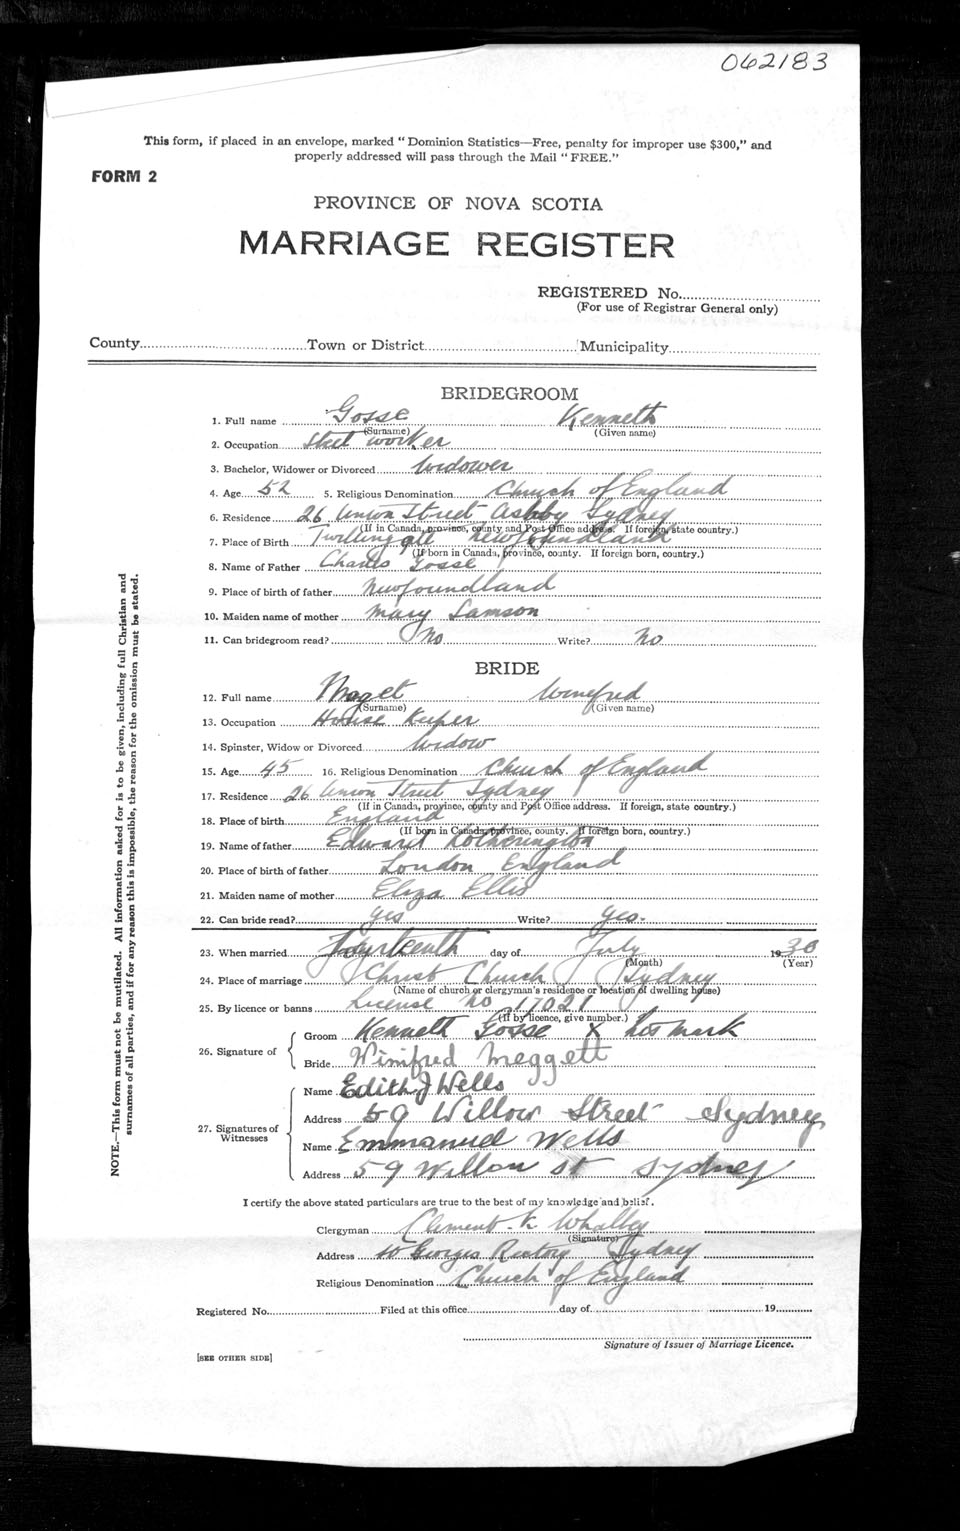 062183
This form, if placed in an envelope, marked "Dominion Statistics—Free, penalty for improper use $300," and
properly addressed will pass through the Mail "FREE."
FORM 2
PROVINCE OF NOVA SCOTIA
MARRIAGE REGISTER
REGISTERED No.
(For use of Registrar General only)
County Town or District Municipality
BRIDEGROOM
1. Full name Gosse Kenneth
(Surname) (Given name)
2. Occupation Steel worker
3. Bachelor, Widower or Divorced Widower
4. Age 52 5. Religious Denomination Church of England
6. Residence 26 Union Street Ashby Sydney
(If in Canada, province, county and Post Office address. If foreign, state country.)
7. Place of Birth Twillingate Newfoundland
(If born in Canada, province, county. If foreign born, country.)
8. Name of Father Charles Gosse
9. Place of birth of father Newfoundland
10. Maiden name of mother Mary Samson
11. Can bridegroom read? No Write? No
BRIDE
12. Full name Maget Winefred
(Surname) (Given name)
13. Occupation House Keeper
14. Spinster, Widow or Divorced Widow
15. Age 45 16. Religious Denomination Church of England
17. Residence 26 Union Street Sydney
(If in Canada, province, county and Post Office address. If foreign, state country.)
18. Place of birth England
(If born in Canada, province, county. If foreign born, country.)
19. Name of father Edward
20. Place of birth of father London England
21. Maiden name of mother Eliza Ellis
22. Can bride read? yes Write? yes.
23. When married Fourteenth day of July 1930
(Month) (Year)
24. Place of marriage Christ Church Sydney
(Name of church or clergyman's residence or location of dwelling house)
25. By licence or banns License No 17021
(If by licence, give number.)
26. Signature of
Groom Kenneth Gosse X his mark
Bride Winifred Meggett
27. Signatures of Witnesses
Name Edith J Wells
Address 59 Willow Street Sydney
Name Emmanuel Wells
Address 59 Willow St Sydney
I certify the above stated particulars are true to the best of my knowledge and belief.
Clergyman Clement Whalley
(Signature)
Address St Georges Rectory Sydney
Religious Denomination Church of England
Registered No. Filed at this office day of 19
Signature of Issuer of Marriage Licence.
[SEE OTHER SIDE]
NOTE.—This form must not be mutilated. All information asked for is to be given, including full Christian and
surnames of all parties, and if for any reason this is impossible, the reason for the omission must be stated.